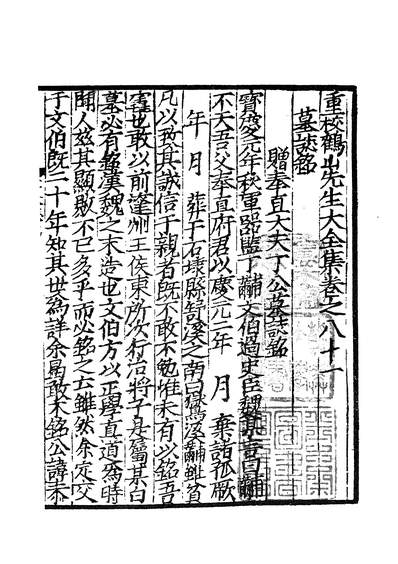 重校鶴山先生大全集卷之八十一
墓誌銘
贈奉直大夫丁公墓誌銘
寶慶元年秋軍器監丁黼文伯過史臣魏某言曰黼
不天吾父奉直府君以慶元二年 月棄諸孤厥
年 月葬于石埭縣 溪之南曰 溪黼雖貧
凡以致其誠信于親者旣不敢不勉惟未有以銘吾
也敢以前蓬州王侯東所次行治將子是屬某曰
墓必有銘漢魏之末造也文伯方以正學直道爲時
聞人玆其顯敭不已多乎而必銘之云雖然余定交
于文伯旣三十年知其世爲詳余曷敢不銘公諱泰